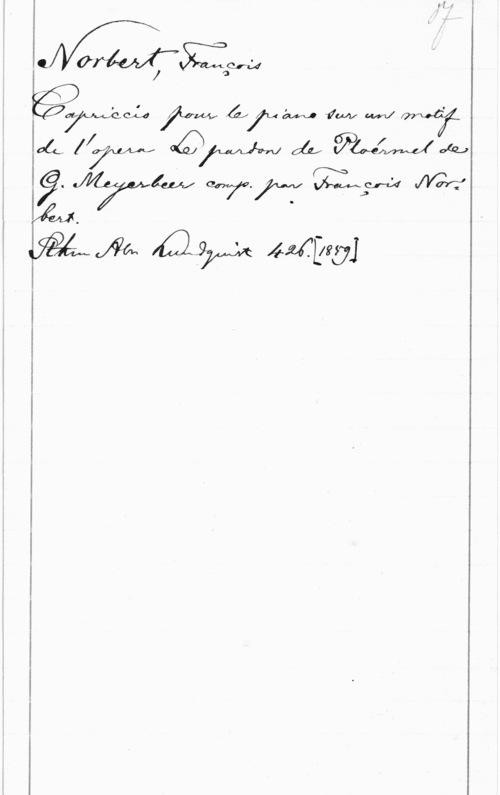 Norbert, François
Capriccio pour le piano sur un motif
de l'opera Le pardon de Ploërmel de
G. Meyerbeer comp. par François Nor-
bert.
Sthm Abr Lundquist 426. [1859]